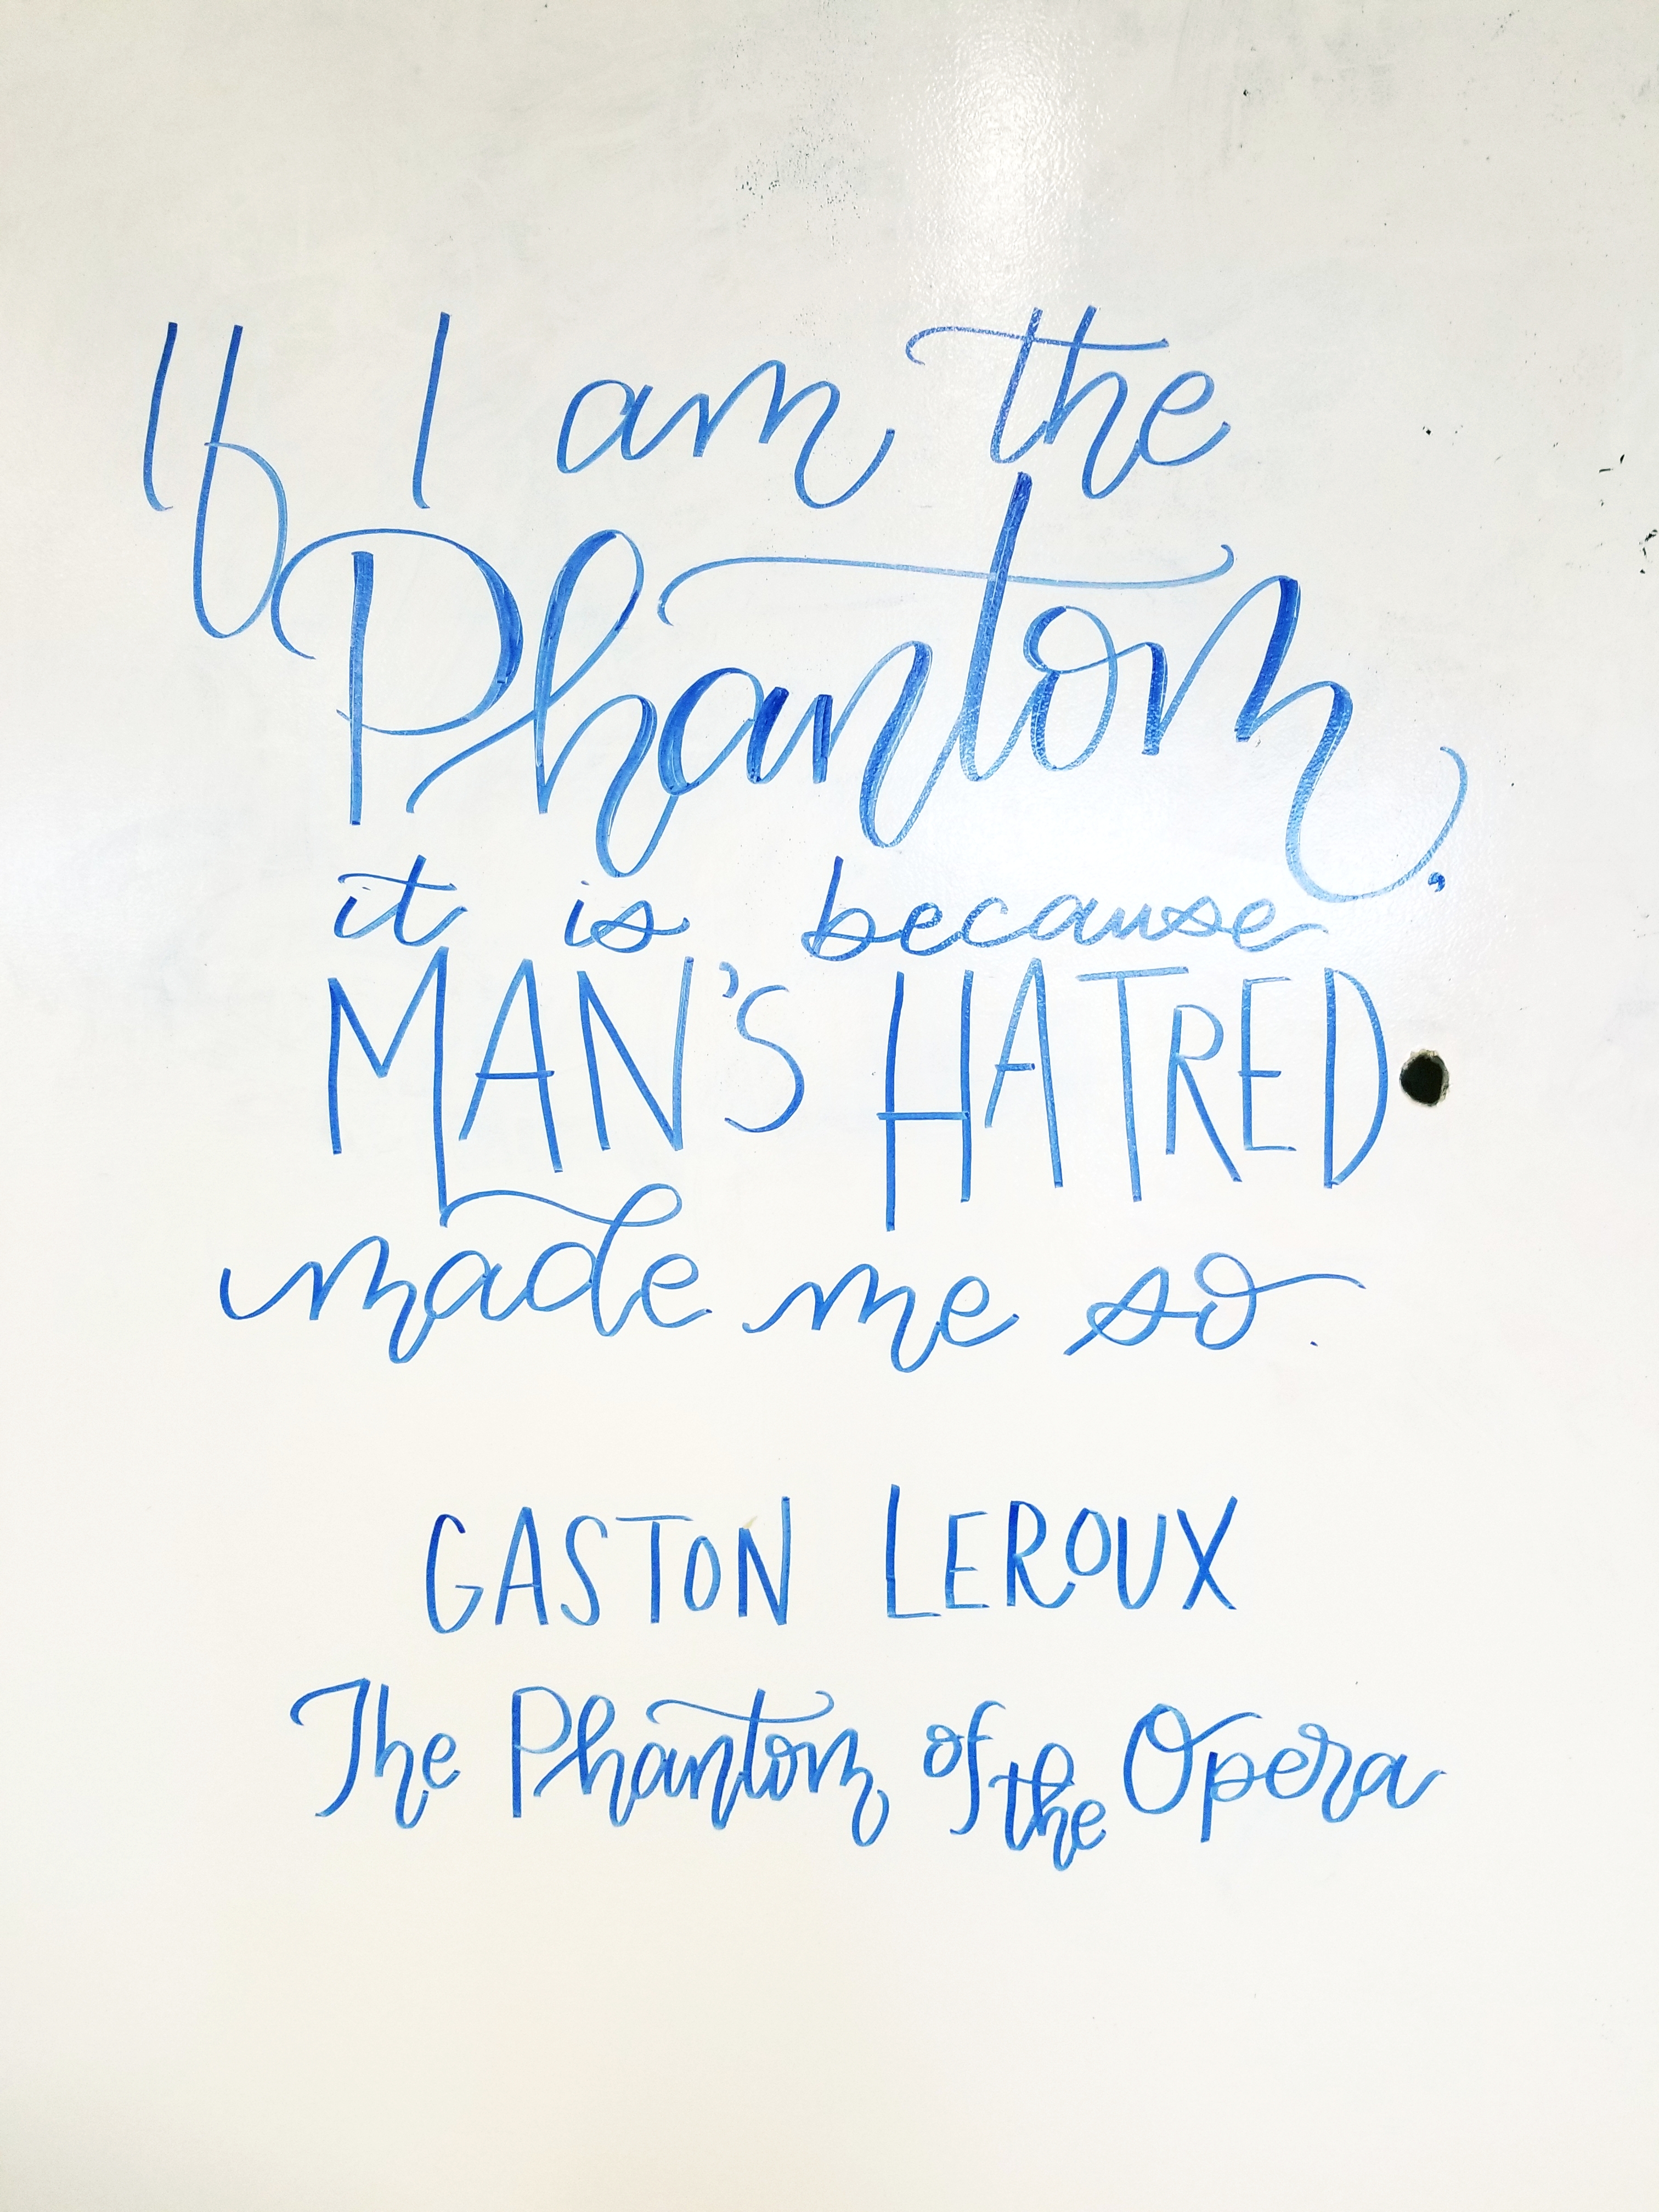 If I am the
Phantom,
it is because
MAN'S HATRED
made me so.
GASTON LEROUX
The Phantom of the Opera